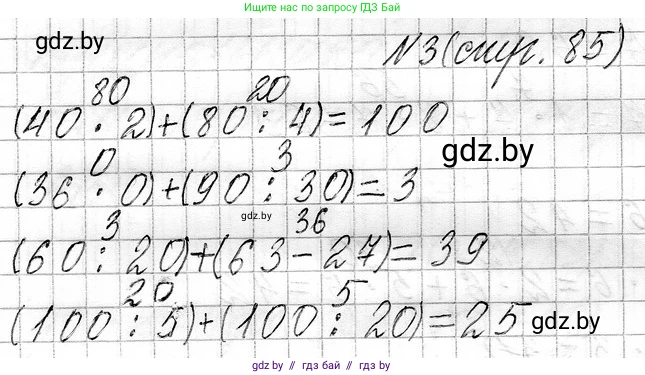 Ищите нас по запросу ГДЗ Бай
gdz.by
N3 (стр. 85)
80 20
(40 · 2)+(80 : 4)= 100
gdz.by
0 3
(36 · 0)+(90 : 30)= 3
gdz.by
3 36
(60 : 20)+(63-27)= 39
20 5
(100 : 5)+(100 : 20)= 25
gdz.by
gdz.by // гдз бай // gdz.by